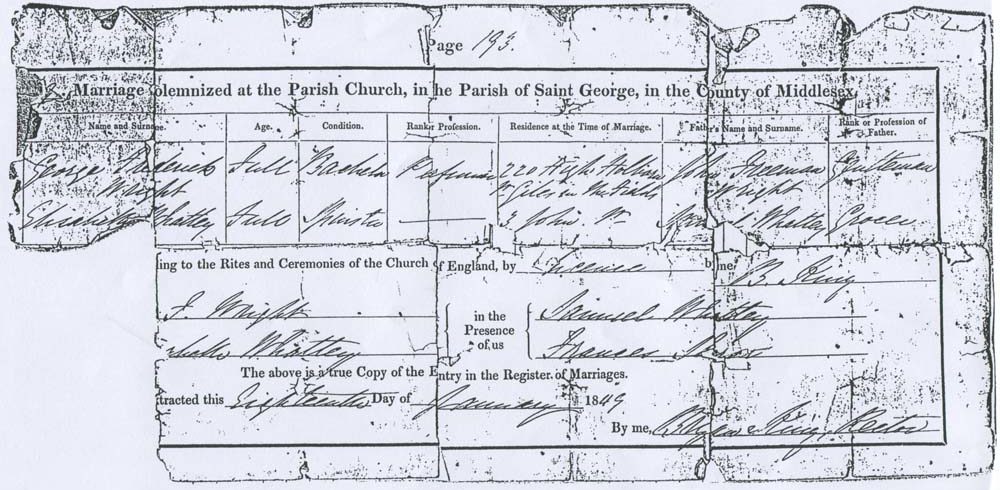 Page 193.
Marriage solemnized at the Parish Church, in he Parish of Saint George, in the County of Middlesex,
Name and Surname. Age. Condition. Rank or Profession. Residence at the Time of Marriage. Father's Name and Surname. Rank or Profession of Father.
George Frederick Full Bachelor Perfumer 220 High Holborn John Freeman Gentleman
Wright St Giles in the Fields Wright
Elizabeth Whatley Full Spinster 3 John St Whatley Grocer
ing to the Rites and Ceremonies of the Church of England, by Licence by me,
B. King
F. Wright in the Presence of us Samuel Whatley
Whatley Frances
The above is a true Copy of the Entry in the Register of Marriages.
tracted this Eighteenth Day of January 1849
By me, King Rector